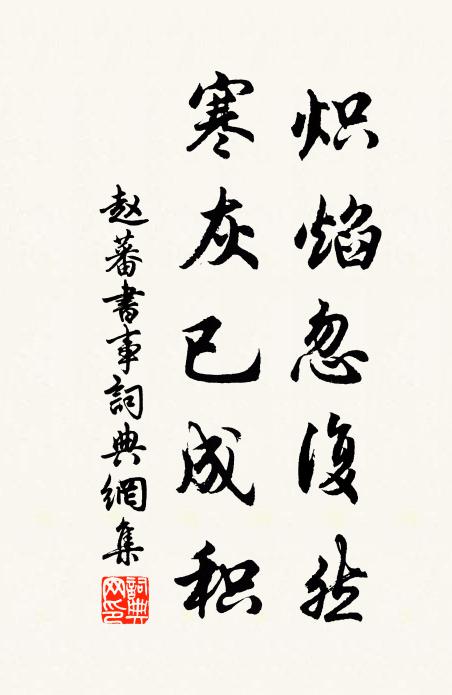 炽焰忽復然
寒灰已成积
赵蕃書事詞典網集
詞典网印